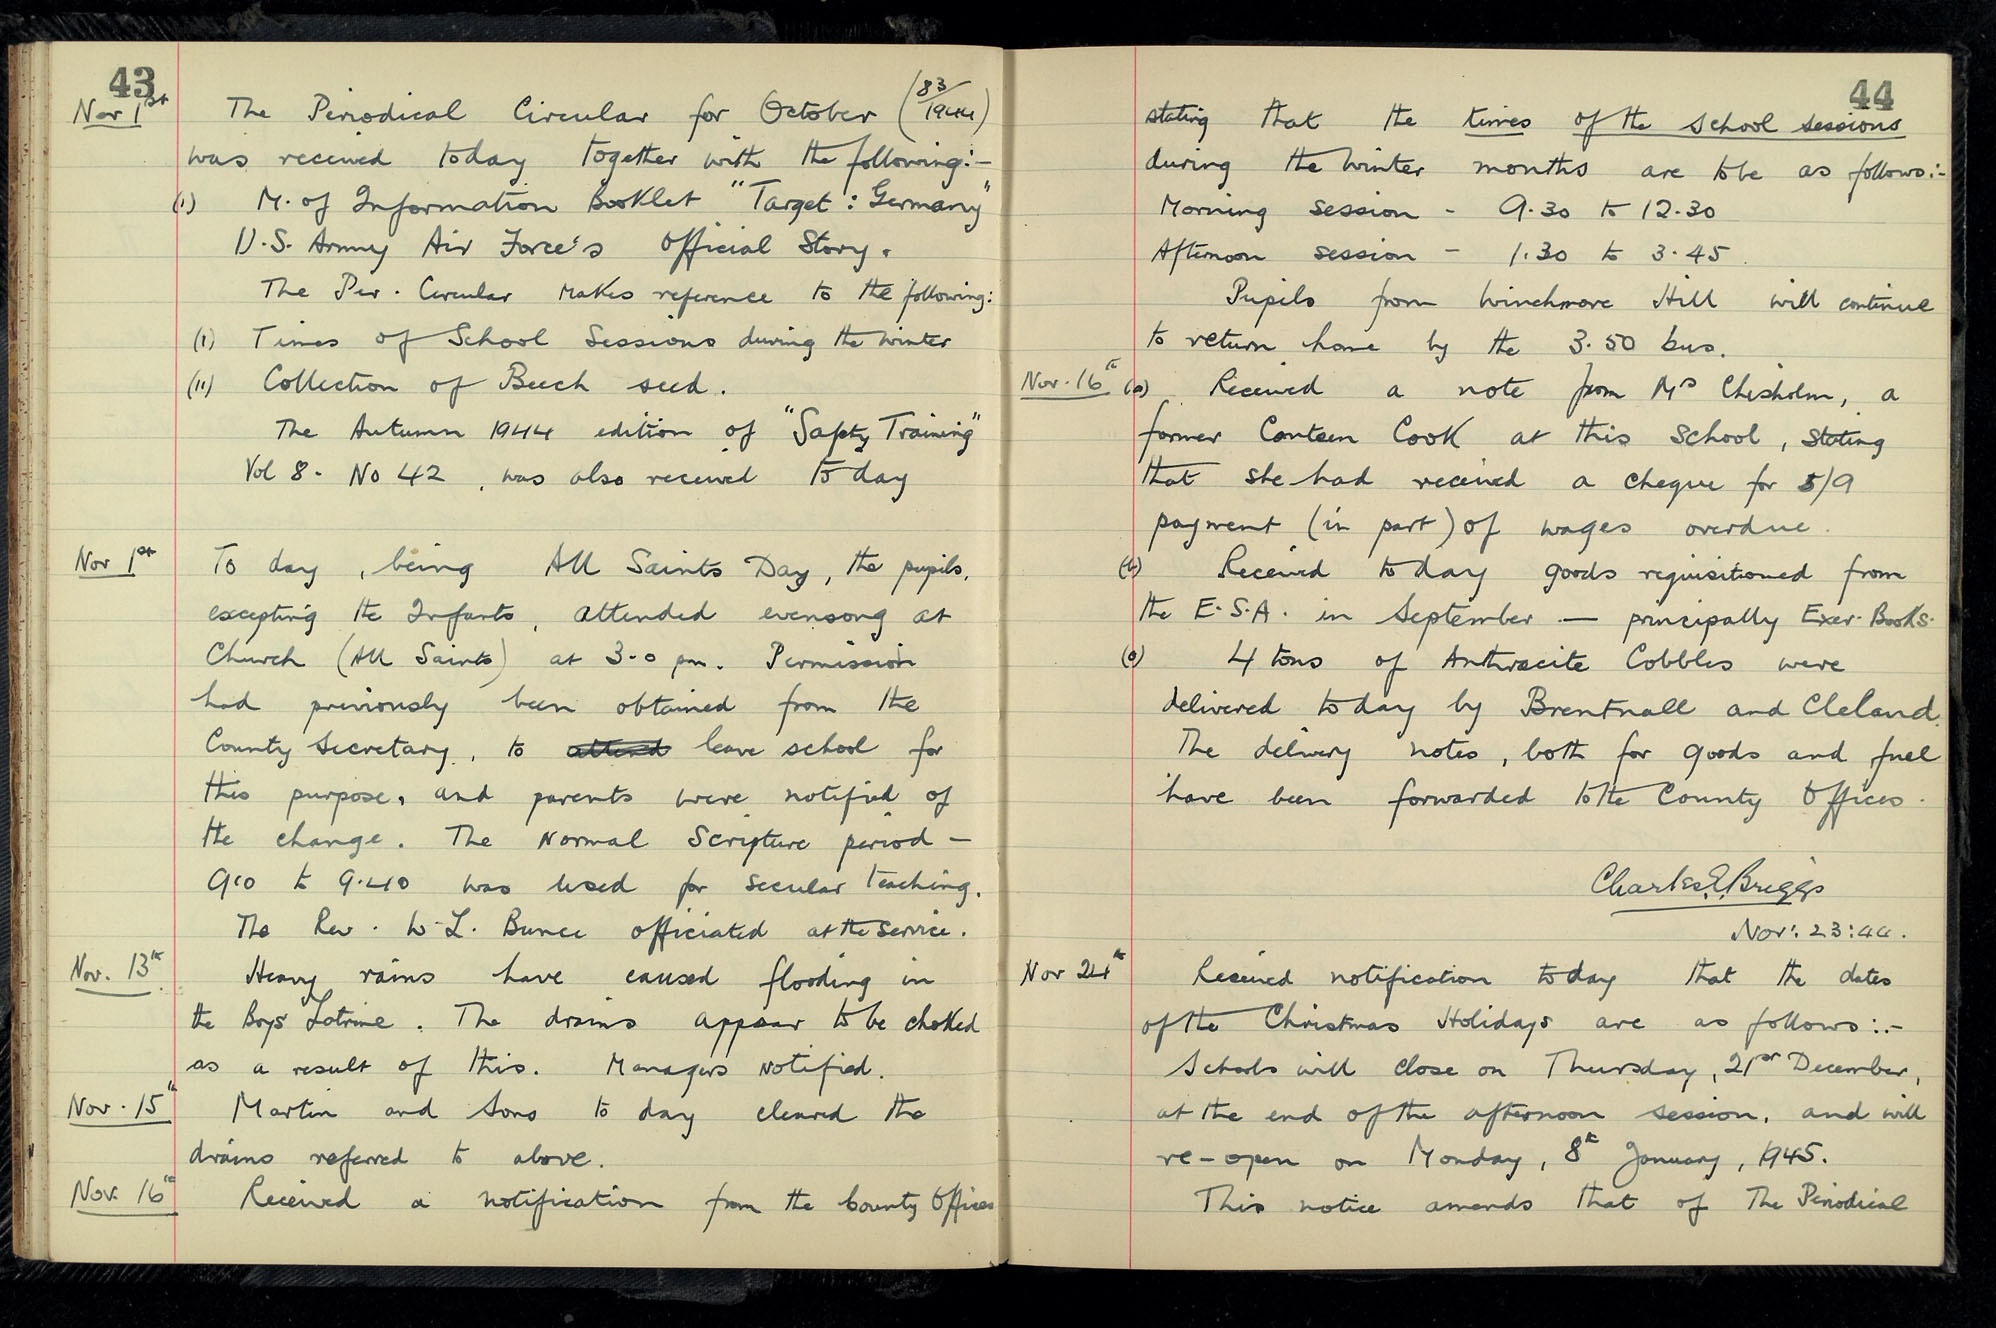 43
Nov 1st The Periodical Circular for October (83/1944)
was received today together with the following:-
(i) M. of Information Booklet "Target: Germany"
U.S. Army Air Force's official Story.
The Per. Circular makes reference to the following:
(i) Times of School Sessions during the winter
(ii) Collection of Beech seed.
The Autumn 1944 edition of "Safety Training"
Vol 8. No 42, was also received today
Nov 1st To day, being All Saints Day, the pupils,
excepting the Infants, attended evensong at
Church (All Saints) at 3.0 pm. Permission
had previously been obtained from the
County Secretary, to attend leave school for
this purpose, and parents were notified of
the change. The normal Scripture period -
9.0 to 9.40 was used for secular teaching.
The Rev. W. L. Bunce officiated at the service.
Nov. 13th Heavy rains have caused flooding in
the Boys' Latrine. The drains appear to be choked
as a result of this. Managers notified.
Nov. 15th Martin and Sons to day cleared the
drains referred to above.
Nov. 16th Received a notification from the County Offices
44
stating that the times of the School sessions
during the winter months are to be as follows:-
Morning session - 9.30 to 12.30
Afternoon session - 1.30 to 3.45.
Pupils from Winchmore Hill will continue
to return home by the 3.50 bus.
Nov. 16th (a) Received a note from Mrs Chisholm, a
former Canteen Cook at this School, stating
that she had received a cheque for 5/9
payment (in part) of wages overdue.
(b) Received today goods requisitioned from
the E.S.A. in September — principally Exer. Books.
(c) 4 tons of Anthracite Cobbles were
delivered today by Brentnall and Cleland.
The delivery notes, both for goods and fuel
have been forwarded to the County Offices.
Charles E. Briggs
Nov: 23:44.
Nov 24th Received notification today that the dates
of the Christmas Holidays are as follows:-
Schools will close on Thursday, 21st December,
at the end of the afternoon session, and will
re-open on Monday, 8th January, 1945.
This notice amends that of The Periodical